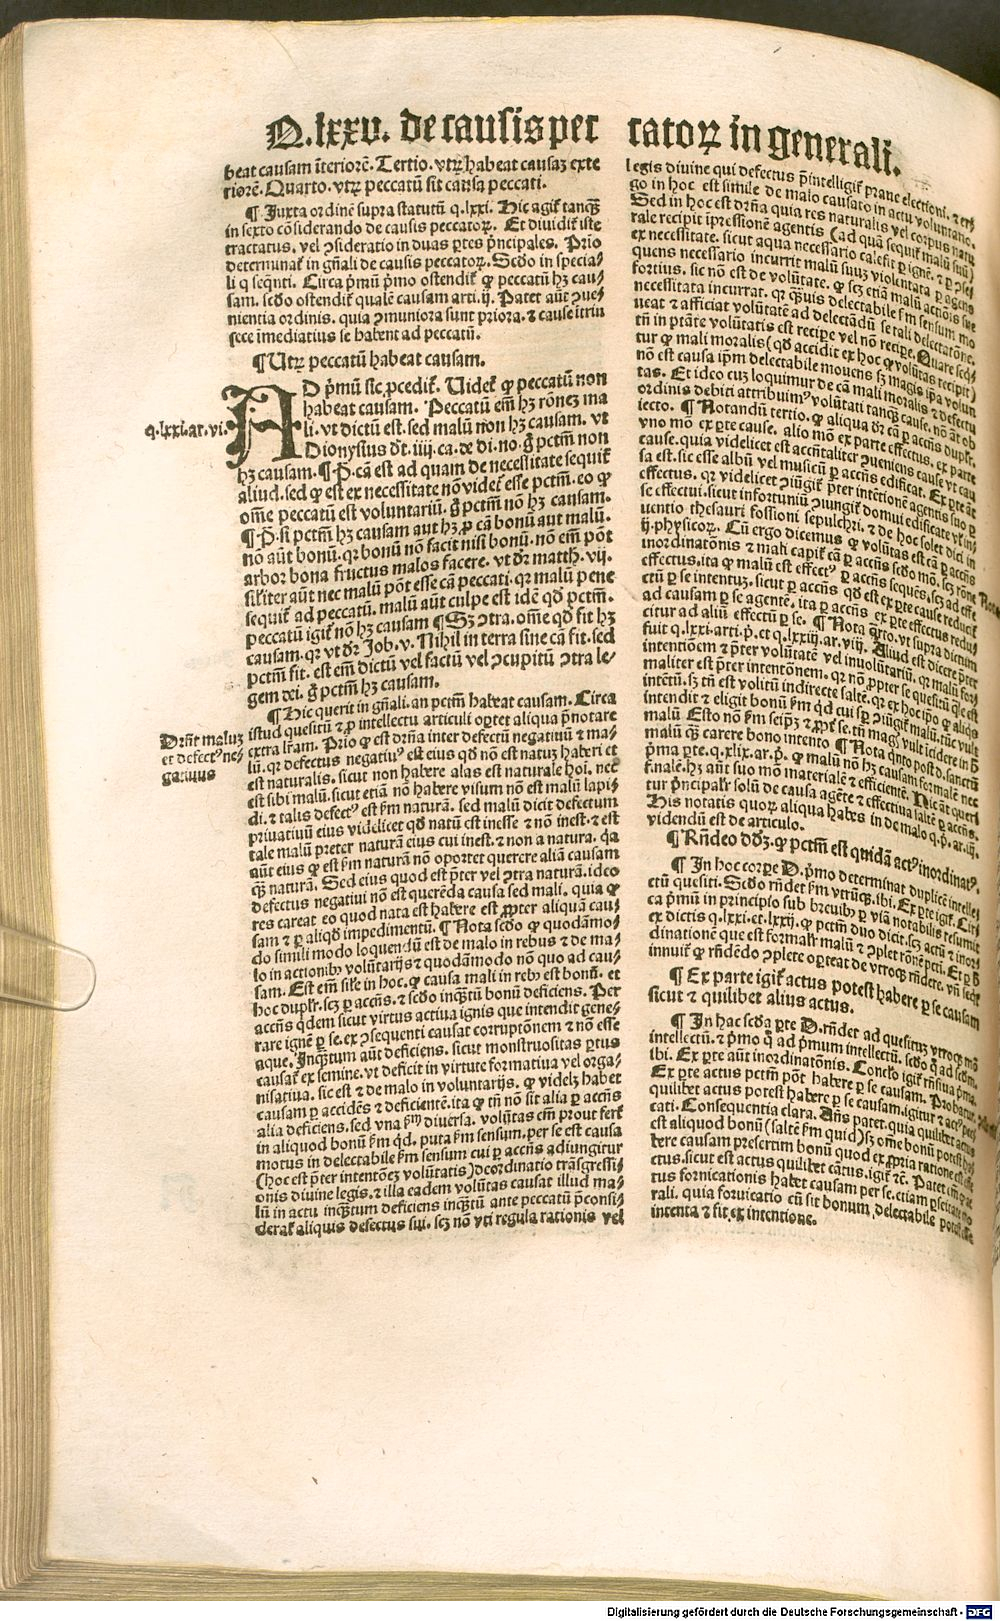 Q.lxxv. de causis pec catoꝝ in generali.
beat causam ĩteriorẽ. Tertio. vtꝝ habeat causaȝ exte
riorẽ. Quarto. vtꝝ peccatũ sit causa peccati.
¶ Juxta ordinẽ supra statutũ q.lxxi. Hic agit̃ tanqȝ̃
in sexto cõsiderando de causis peccatoꝝ. Et diuidit̃ iste
tractatus, vel ꝯsideratio in duas ꝑtes p̃ncipales. Prĩo
determinat̃ in gñali de causis peccatoꝝ. Scďo in specia-
li q seqñti. Circa p̃mũ p̃mo ostendit̃ ꝙ peccatũ hȝ cau-
sam. scďo ostendit̃ qualẽ causam arti.ij. Patet aũt ꝯue-
nientia ordinis. quia ꝯmuniora sunt priora. ⁊ cause itriu
sece imediatius se habent ad peccatũ.
¶ Utꝝ peccatũ habeat causam.
AD p̃mũ sic ꝓcedit̃. Uidet̃ ꝙ peccatũ non
habeat causam. Peccatũ em̃ hȝ rõnez ma
q.lxxi.ar.vi.
li. vt dictũ est. sed malũ non hȝ causam. vt
Dionysius dt̃. iiij. ca. de di. no. g̊ pctm̃ non
hȝ causam. ¶ P̃. cã est ad quam de necessitate sequit̃
aliud. sed ꝙ est ex necessitate nõ videt̃ esse pctm̃. eo ꝙ
om̃e peccatũ est voluntariũ. g̊ pctm̃ nõ hȝ causam.
¶ P̃. si pctm̃ hȝ causam aut hȝ ꝓ cã bonũ aut malũ.
nõ aũt bonũ. qꝛ bonũ nõ facit nisi bonũ. nõ em̃ põt
arbor bona fructus malos facere. vt dꝛ matth. vij.
sil̃iter aũt nec malũ põt esse cã peccati. qꝛ malũ pene
sequit̃ ad peccatũ. malũ aũt culpe est idẽ qď pctm̃.
peccatũ igit̃ nõ hȝ causam ¶ Sȝ ꝯtra. om̃e qď fit hȝ
causam. qꝛ vt dꝛ Job. v. Nihil in terra sine cã fit. sed
pctm̃ fit. est em̃ dictũ vel factũ vel ꝯcupitũ ꝯtra le-
gem dei. g̊ pctm̃ hȝ causam.
¶ Hic querit in gñali. an pctm̃ habeat causam. Circa
istud quesitũ ⁊ ꝓ intellectu articuli oꝑtet aliqua p̃notare
Drñt maluȝ
et defect⁹ ne-
gatiuus
extra lr̃am. Prĩo ꝙ est drña inter defectũ negatiuũ ⁊ ma-
lũ. qꝛ defectus negatiu⁹ est eius qď nõ est natuȝ haberi et
est naturalis. sicut non habere alas est naturale hoĩ. nec
est sibi malũ. sicut etiã nõ habere visum nõ est malũ lapi-
di. ⁊ talis defect⁹ est s̃m naturã. sed malũ dicit defectum
priuatiuũ eius videlicet qď natũ est inesse ⁊ nõ inest. ⁊ est
tale malũ preter naturã eius cui inest. ⁊ non a natura. q̃a
aũt eius ꝙ est s̃m naturã nõ oportet querere aliã causam
qȝ̃ naturã. Sed eius quod est p̃ter vel ꝯtra naturã. ideo
defectus negatiui nõ est querẽda causa sed mali. quia ꝙ
res careat eo quod nata est habere est ꝓpter aliquã cau-
sam ⁊ ꝑ aliqď impedimentũ. ¶ Nota scďo ꝙ quodãmo-
do simili modo loquendũ est de malo in rebus ⁊ de ma-
lo in actionib⁹ volũtarijs ⁊ quodãmodo nõ quo ad cau-
sam. Est em̃ sil̃e in hoc. ꝙ causa mali in reb⁹ est bonũ. et
hoc duplr̃. scȝ ꝑ accñs. ⁊ scďo inqȝ̃tũ bonũ deficiens. Per
accñs q̃dem sicut virtus actiua ignis que intendit gene-
rare ignẽ ꝑ se. ex ꝯsequenti causat corruptõnem ⁊ nõ esse
aque. Inqȝ̃tum aũt deficiens. sicut monstruositas ꝑtus
causat̃ ex semine. vt deficit in virtute formatiua vel orga-
nisatiua. sic est ⁊ de malo in voluntarijs. ꝙ videlȝ habet
causam ꝑ accidẽs ⁊ deficientẽ. ita ꝙ tñ nõ sit alia ꝑ accñs
alia deficiens. sed vna s̃m diuersa. volũtas em̃ prout fert̃
in aliquod bonũ s̃m q̃d. puta s̃m sensum. per se est causa
motus in delectabile s̃m sensum cui ꝑ accñs adiungitur
(hoc est p̃ter intentõeȝ volũtatis) deordinatio trãsgressi-
onis diuine legis. ⁊ illa eadem volũtas causat illud ma-
lũ in actu inqȝ̃tum deficiens inqȝ̃tũ ante peccatũ p̃consi-
derat aliquis defectus sui. scȝ nõ vti regula rationis vel
legis diuine qui defectus p̃intelligit̃ praue electioni. ⁊
go in hoc est simile de malo causato in actu voluntario.
Sed in hoc est drña quia res naturalis vel corpus natu
rale recipit ipressionẽ agentis (ad quã sequit̃ malũ suũ)
ex necessitate. sicut aqua necessario calefit ꝑ ignẽ. ⁊ ꝑ ꝯse-
quens necessario incurrit malũ suuȝ violentata ꝑ agens
fortius. sic nõ est de volũtate. ꝙ scȝ etiã malũ actiõis sue
necessitata incurrat. qꝛ qȝ̃uis delectabile s̃m sensum mo
ueat ⁊ afficiat voluntatẽ ad delectãdũ se tali delectatõne.
tñ in ptãte volũtatis est recipe vel nõ recipe. Quare seq̃-
tur ꝙ mali moralis (qď accidit ex hoc ꝙ volũtas recipit)
nõ est causa ip̃m delectabile mouens sȝ magis ip̃a volun
tas. Et ideo cuȝ loquimur de cã mali moralis ⁊ defectu
ordinis debiti attribuim⁹ volũtati tanqȝ̃ cause. nõ aũt ob
iecto. ¶ Notandũ tertio. ꝙ aliqua dꝛ cã ꝑ accñs duplr̃.
vno mõ ex ꝑte cause. alio mõ ex parte effectus. ex parte
cause. quia videlicet est accñtaliter ꝯueniens cause vt cau
sa est. sic esse albũ vel musicũ ꝑ accñs edificat. Ex ꝑte aũt
effectus. qꝛ videlicet ꝯiũgit̃ p̃ter intẽtionẽ agentis suo ꝑ
se effectui. sicut infortuniũ ꝯiungit̃ domui edificate vt̃ in-
uentio thesauri fossioni sepulchri. ⁊ de hoc solet dici in
ij. physicoꝝ. Cũ ergo dicemus ꝙ volũtas est cã ꝑ accñs
inordinatõnis ⁊ mali capit̃ cã ꝑ accñs scďo mõ. scȝ rõne
effectus. ita ꝙ malũ est effect⁹ ꝑ accñs sequẽs. scȝ ad effe
ctũ ꝑ se intentuȝ. sicut ꝑ accñs qď est ex ꝑte cause reducit̃
ad causam ꝑ se agentẽ. ita ꝑ accñs ex ꝑte effectus redu-
citur ad aliũ effectũ ꝑ se. ¶ Nota q̃rto. vt supra dictum
fuit q.lxxi.arti.p̃. et q.lxxiij.ar.viij. Aliud est dicere p̃ter
intentiõem ⁊ p̃ter volũtatẽ vel inuolũtariũ. qꝛ malũ for-
maliter est p̃ter intentõnem. qꝛ nõ ꝓpter se quesitũ q̃le est
intẽtũ. sȝ tñ est volitũ indirecte saltẽ. qꝛ ex hoc ip̃o ꝙ aliq̃s
intendit ⁊ eligit bonũ s̃m qď cui sꝑ ꝯiũgit̃ malũ. tũc vult
malũ Esto nõ s̃m seip̃ȝ ⁊ ꝓpt̃ se. tñ mag⁹ vult icidere in ꝙ
malũ qȝ̃ carere bono intento ¶ Nota q̃nto post d. sanctũ
p̃ma ꝑte. q.xlix.ar.p̃. ꝙ malũ nõ hȝ causam formalẽ nec
f.nalẽ. hȝ aũt suo mõ materialẽ ⁊ efficientẽ. Hic aũt queri
tur p̃ncipalr̃ solũ de causa agẽte ⁊ effectiua saltẽ ꝑ accñs.
His notatis quoꝝ aliqua habes in de malo q.p̃.ar.iij.
videndũ est de articulo.
¶ Rñdeo ďďȝ. ꝙ pctm̃ est quidã act⁹ inordinat⁹.
¶ In hoc corꝑe D. p̃mo determinat duplicẽ intelle
ctũ quesiti. Scďo rñdet s̃m vtrũqȝ. ibi. Ex ꝑte igit̃. Cir-
ca p̃mũ in principio sub breuib⁹ ꝑ viã notabilis resumit
ex dictis q.lxxi.et.lxxij. ꝙ pctm̃ duo dicit. scȝ actũ ⁊ inor-
dinationẽ que est formalr̃ malũ ⁊ ꝯplet rõnẽ pcti. Et ꝑ ꝙ
innuit ꝙ rñdẽdo ꝯplete oꝑteat de vtroqȝ rñdere. vñ seq̃t̃
¶ Ex parte igit̃ actus potest habere ꝑ se causam
sicut ⁊ quilibet alius actus.
¶ In hac scďa ꝑte D. rñdet ad quesituȝ vtroqȝ mõ
intellectũ. ⁊ p̃mo q̃ ad p̃mum intellectũ. scďo q̃ ad scďm.
ibi. Ex ꝑte aũt inordinatõnis. Conclo igit̃ rñsiua p̃ma.
Ex ꝑte actus pctm̃ põt habere ꝑ se causam. Probatur.
quilibet actus potest habere ꝑ se causam. igitur ⁊ act⁹ pec-
cati. Consequentia clara. Añs patet. quia quilibet actus
est aliquod bonũ (saltẽ s̃m quid) sȝ om̃e bonũ potest ha-
bere causam presertim bonũ quod ex ꝓpria ratione est effe
ctus. sicut est actus quilibet cãtus. igit̃ ⁊c̃. Patet em̃ ꝙ ac
tus fornicationis habet causam per se. etiam ꝑ seitate mo
rali. quia fornicatio cũ sit bonum delectabile potest esse
intenta ⁊ fit ex intentione.